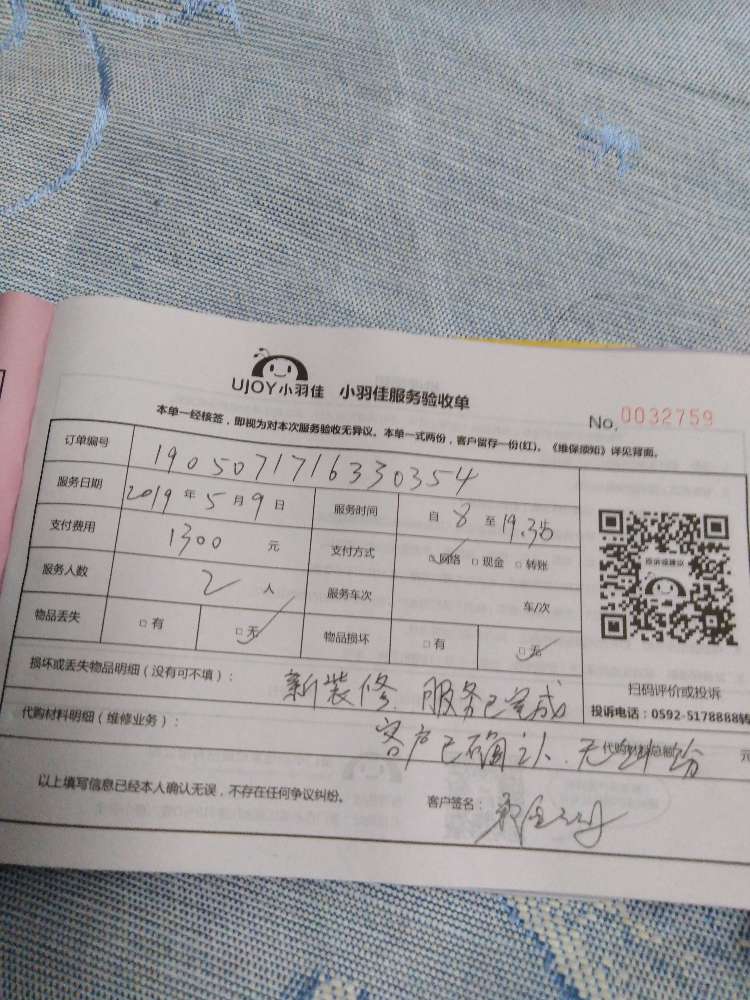 UJOY小羽佳 小羽佳服务验收单
No. 0032759
本单一经核签，即视为对本次服务验收无异议。本单一式两份，客户留存一份(红)。《维保须知》详见背面。
订单编号 1905071716330354
服务日期 2019年5月9日 服务时间 自8至19.30
支付费用 1300元 支付方式 □网络 □现金 □转账
服务人数 2人 服务车次 车/次
物品丢失 □有 □无 物品损坏 □有 □无
投诉或建议
扫码评价或投诉
投诉电话：0592-5178888转
损坏或丢失物品明细（没有可不填）： 新装修 服务已完成
代购材料明细（维修业务）： 客户已确认.无纠纷
代购材料总额 元
以上填写信息已经本人确认无误，不存在任何争议纠纷。 客户签名：